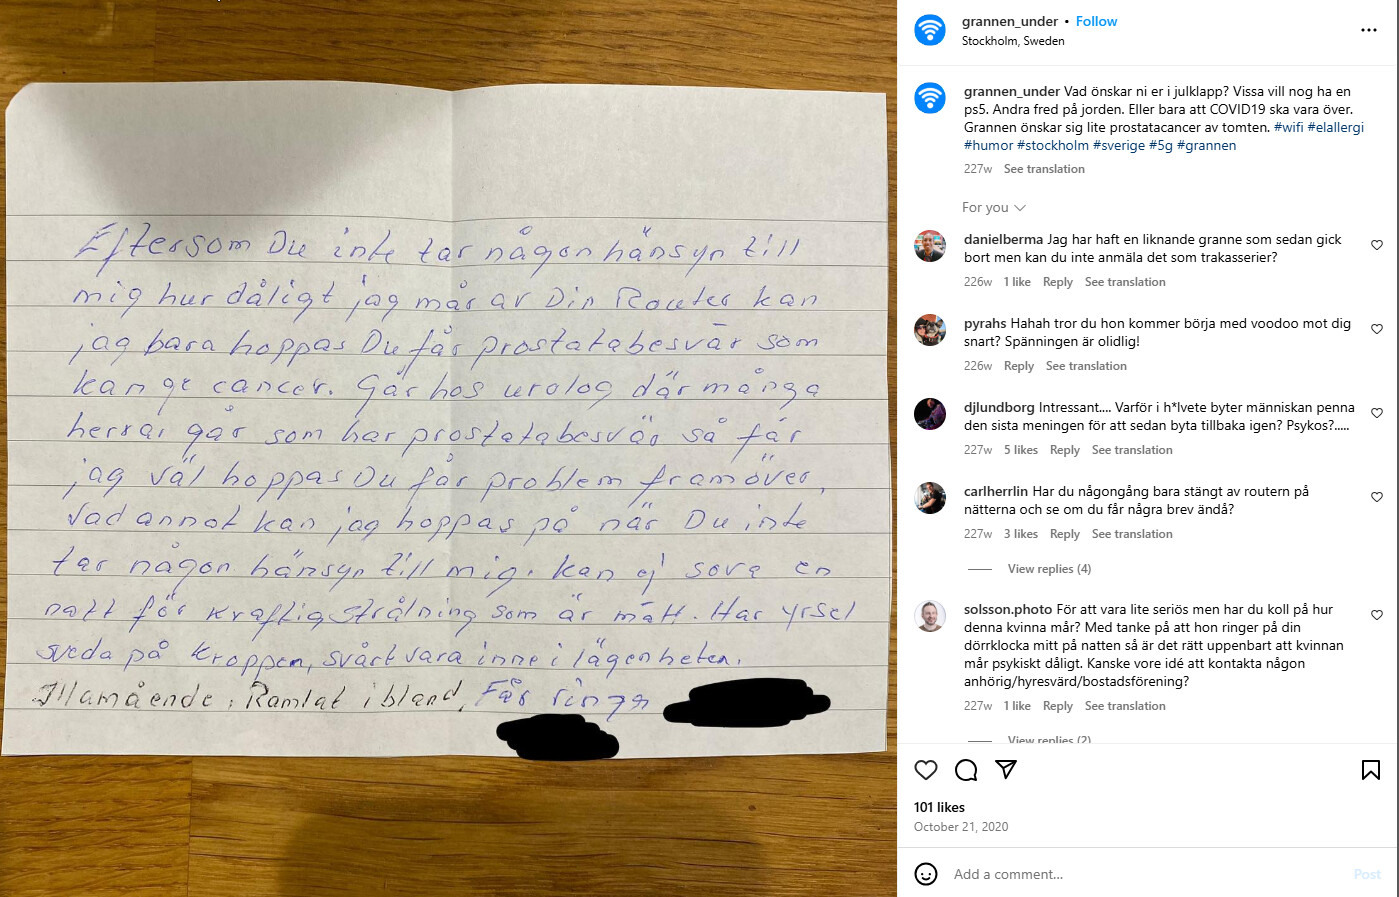 Eftersom Du inte tar någon hänsyn till
mig hur dåligt jag mår av Din Router kan
jag bara hoppas Du får prostatabesvär som
kan ge cancer. Går hos urolog där många
herrar går som har prostatabesvär så får
jag väl hoppas Du får problem framöver,
vad annat kan jag hoppas på när Du inte
tar någon hänsyn till mig. kan ej sova en
natt för kraftig strålning som är mätt. Har yrsel
sveda på kroppen, svårt vara inne i lägenheten.
Illamående, Ramlat ibland, Får ringa
grannen_under • Follow
Stockholm, Sweden
grannen_under Vad önskar ni er i julklapp? Vissa vill nog ha en
ps5. Andra fred på jorden. Eller bara att COVID19 ska vara över.
Grannen önskar sig lite prostatacancer av tomten. #wifi #elallergi
#humor #stockholm #sverige #5g #grannen
227w See translation
For you
danielberma Jag har haft en liknande granne som sedan gick
bort men kan du inte anmäla det som trakasserier?
226w 1 like Reply See translation
pyrahs Hahah tror du hon kommer börja med voodoo mot dig
snart? Spänningen är olidlig!
226w Reply See translation
djlundborg Intressant.... Varför i h*lvete byter människan penna
den sista meningen för att sedan byta tillbaka igen? Psykos?.....
227w 5 likes Reply See translation
carlherrlin Har du någongång bara stängt av routern på
nätterna och se om du får några brev ändå?
227w 3 likes Reply See translation
View replies (4)
solsson.photo För att vara lite seriös men har du koll på hur
denna kvinna mår? Med tanke på att hon ringer på din
dörrklocka mitt på natten så är det rätt uppenbart att kvinnan
mår psykiskt dåligt. Kanske vore idé att kontakta någon
anhörig/hyresvärd/bostadsförening?
227w 1 like Reply See translation
View replies (2)
101 likes
October 21, 2020
Add a comment...
Post